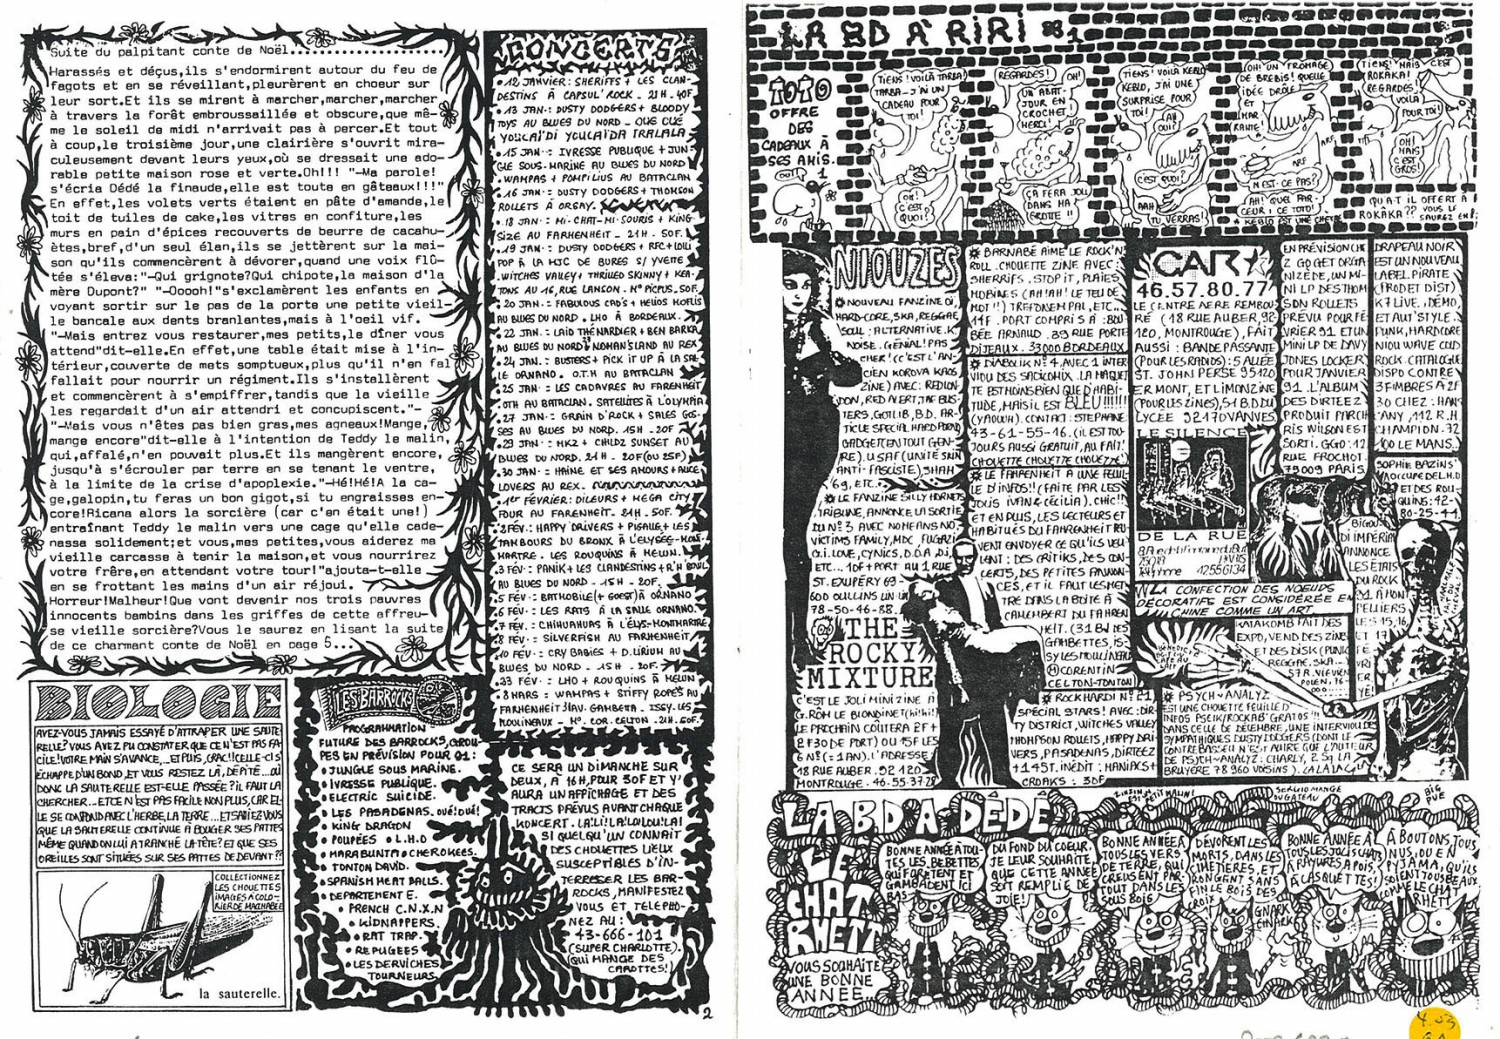 Suite du palpitant conte de Noël
Harassés et déçus,ils s'endormirent autour du feu de
fagots et en se réveillant,pleurèrent en choeur sur
leur sort.Et ils se mirent à marcher,marcher,marcher
à travers la forêt embroussaillée et obscure,que mê-
me le soleil de midi n'arrivait pas à percer.Et tout
à coup,le troisième jour,une clairière s'ouvrit mira-
culeusement devant leurs yeux,où se dressait une ado-
rable petite maison rose et verte.Oh!!! "-Ma parole!
s'écria Dédé la finaude,elle est toute en gâteaux!!!"
En effet,les volets verts étaient en pâte d'amande,le
toit de tuiles de cake,les vitres en confiture,les
murs en pain d'épices recouverts de beurre de cacahu-
ètes,bref,d'un seul élan,ils se jettèrent sur la mai-
son qu'ils commencèrent à dévorer,quand une voix flû-
tée s'éleva:"-Qui grignote?Qui chipote,la maison d'la
mère Dupont?" "-Ooooh!"s'exclamèrent les enfants en
voyant sortir sur le pas de la porte une petite vieil-
le bancale aux dents branlantes,mais à l'oeil vif.
"-Mais entrez vous restaurer,mes petits,le dîner vous
attend"dit-elle.En effet,une table était mise à l'in-
térieur,couverte de mets somptueux,plus qu'il n'en fal
fallait pour nourrir un régiment.Ils s'installèrent
et commencèrent à s'empiffrer,tandis que la vieille
les regardait d'un air attendri et concupiscent."-
"-Mais vous n'êtes pas bien gras,mes agneaux!Mange,
mange encore"dit-elle à l'intention de Teddy le malin,
qui,affalé,n'en pouvait plus.Et ils mangèrent encore,
jusqu'à s'écrouler par terre en se tenant le ventre,
à la limite de la crise d'apoplexie."-Hé!Hé!A la ca-
ge,galopin,tu feras un bon gigot,si tu engraisses en-
core!Ricana alors la sorcière (car c'en était une!)
entraînant Teddy le malin vers une cage qu'elle cade-
nassa solidement;et vous,mes petites,vous aiderez ma
vieille carcasse à tenir la maison,et vous nourrirez
votre frère,en attendant votre tour!"ajouta-t-elle
en se frottant les mains d'un air réjoui.
Horreur!Malheur!Que vont devenir nos trois pauvres
innocents bambins dans les griffes de cette affreu-
se vieille sorcière?Vous le saurez en lisant la suite
de ce charmant conte de Noël en page 5...
BIOLOGIE
AVEZ-VOUS JAMAIS ESSAYÉ D'ATTRAPER UNE SAUTE
RELLE? VOUS AVEZ PU CONSTATER QUE CE N'EST PAS FA-
CILE! VOTRE MAIN S'AVANCE,... ET PUIS, CRAC! CELLE-CI S'
ÉCHAPPE D'UN BOND, ET VOUS RESTEZ LÀ, DÉPITÉ... OÙ
DONC LA SAUTERELLE EST-ELLE PASSÉE? IL FAUT LA
CHERCHER... ET CE N'EST PAS FACILE NON PLUS, CAR EL-
LE SE CONFOND AVEC L'HERBE, LA TERRE... ET SAVIEZ-VOUS
QUE LA SAUTERELLE CONTINUE À BOUGER SES PATTES
MÊME QUAND ON LUI A TRANCHÉ LA TÊTE? ET QUE SES
OREILLES SONT SITUÉES SUR SES PATTES DE DEVANT??
COLLECTIONNEZ
LES CHOUETTES
IMAGES À COLO-
RIER DE MACHABEE
la sauterelle.
CONCERTS
12 JANVIER: SHERIFFS + LES CLAN-
DESTINS À CAPSUL' ROCK - 21H - 40F
13 JAN: DUSTY DODGERS + BLOODY
TOYS AU BLUES DU NORD - QUE CUÉ
YOUCAÏDI YOUCAÏDA TRALALA
15 JAN: IVRESSE PUBLIQUE + JUN-
GLE SOUS-MARINE AU BLUES DU NORD
WAMPAS + POMPILIUS AU BATACLAN
16 JAN: DUSTY DODGERS + THOMSON
ROLLETS À ORSAY.
18 JAN: MI-CHAT-MI-SOURIS + KING
SIZE AU FARHENHEIT - 21H - 50F.
19 JAN: DUSTY DODGERS + RFC + LOLLI
POP À LA MJC DE BURES S/ YVETTE
WITCHES VALLEY + THRILLED SKINNY + KEA-
TONS AU 16, RUE LANSON. M° PICPUS. 50F.
20 JAN: FABULOUS CAD'S + HELIOS HOFLIS
AU BLUES DU NORD. LHO À BORDEAUX.
22 JAN: LAID THÉNARDIER + BEN BARKA
AU BLUES DU NORD NOMAN'SLAND AU REX
24 JAN: BUSTERS + PICK IT UP À LA SAL
LE ORNANO. O.T.H AU BATACLAN
25 JAN: LES CADAVRES AU FARENHEIT
OTH AU BATACLAN. SATELLITES À L'OLYMPIA
27 JAN: GRAIN D'ROCK + SALES GOS-
SES AU BLUES DU NORD. 15H - 20F
29 JAN: HK2 + CHILDZ SUNSET AU
BLUES DU NORD. 21H - 20F (OU 25F)
30 JAN: HAINE ET SES AMOURS + ALICE
LOVERS AU REX.
1er FÉVRIER: DILEURS + MEGA CITY
FOUR AU FARENHEIT. 21H. 50F.
2 FÉV: HAPPY DRIVERS + PIGALLE + LES
TAMBOURS DU BRONX À L'ELYSÉE-MONT-
MARTRE. LES ROUQUINS À MELUN.
3 FÉV: PANIK + LES CLANDESTINS
AU BLUES DU NORD - 15H - 20F.
5 FÉV: BATMOBILE (+ GOEST) À ORNANO
6 FÉV: LES RATS À LA SALLE ORNANO.
7 FÉV: CHIHUAHUAS À L'ÉLYS-MONTMARTRE
8 FÉV: SILVERFISH AU FARHENHEIT
10 FÉV: CRY BABIES + D.LIRIUM AU
BLUES DU NORD - 15H - 20F.
23 FÉV: LHO + ROUQUINS À MELUN
8 MARS: WAMPAS + STIFFY ROPES AU
FARHENHEIT 31AV. GAMBETTA. ISSY-LES
MOULINEAUX - M°. COR. CELTON. 21H. 50F.
LES BARROCKS
PROGRAMMATION
FUTURE DES BARROCKS, GROU-
PES EN PRÉVISION POUR 91:
• JUNGLE SOUS MARINE.
• IVRESSE PUBLIQUE.
• ELECTRIC SUICIDE.
• LES PASADENAS. oué!oué!
• KING DRAGON
• POUPÉES • L.H.O
• MARABUNTA • CHEROKEES.
• TONTON DAVID.
• SPANISH MEAT BALLS.
• DEPARTEMENT E.
• FRENCH C.N.X.N
• KIDNAPPERS.
• RAT TRAP.
• REFUGEES
• LES DERVICHES
TOURNEURS
CE SERA UN DIMANCHE SUR
DEUX, À 16H, POUR 30F ET Y'
AURA UN AFFICHAGE ET DES
TRACTS PRÉVUS AVANT CHAQUE
KONCERT. LA!LI!LA!LOU!LA!
SI QUELQU'UN CONNAIT
DES CHOUETTES LIEUX
SUSCEPTIBLES D'IN-
TERRESSER LES BAR-
ROCKS, MANIFESTEZ
VOUS ET TELEPHO-
NEZ AU:
43-666-101
(SUPER CHARLOTTE).
(QUI MANGE DES
CAROTTES!)
2
LA BD À RIRI N°1
TOTO
OFFRE
DES
CADEAUX À
SES AMIS.
1
OUI!
TIENS! VOILÀ TARBA!
TARBA... J'AI UN
CADEAU POUR
TOI!
OH!
C'EST
QUOI?
REGARDES!
OH!
UN ABAT-
JOUR EN
CROCHET,
MERCI!
ÇA FERA JOLI
DANS MA
GROTTE!!
TIENS! VOILÀ KEBLO
KEBLO, J'AI UNE
SURPRISE POUR
TOI!
AH
OUI?
C'EST QUOI?
AAH!
TU VERRAS!
OH! UN FROMAGE
DE BREBIS! QUELLE
IDÉE DRÔLE
ET
MAR
RANTE!
ARF
N'EST-CE PAS?
AH! QUEL FAR-
CEUR! CE TOTO!
KEBLO EST UNE CHÈVRE
TIENS! MAIS C'EST
ROKAKA!
REGARDES!
VOILÀ
POUR TOI!
OH!
MAIS
C'EST
GROS!
QU'A-T-IL OFFERT À
ROKAKA?? VOUS LE
SAUREZ EN
NIOUZES
NOUVEAU FANZINE OI,
HARD-CORE, SKA, REGGAE
SOUL: ALTERNATIVE. K
NOISE. GÉNIAL! PAS
CHER! (C'EST L'AN-
CIEN KOROVA KAOS
ZINE) AVEC: REDLON-
DON, RED ALERT, THE BUS-
TERS, GOTLIB, B.D. AR-
TICLE SPECIAL HARD POND
GADGET (EN TOUT GEN-
RE), USAF (UNITÉ SKIN
ANTI-FASCISTE), SHAM
'69, ETC..
LE FANZINE SILLY HORNETS
TRIBUNE, ANNONCE LA SORTIE
DU N°3 AVEC NOMEANSNO,
VICTIMS FAMILY, MDC, FUGAZI
OI. LOVE, CYNICS, D.O.A
ETC... 10F + PORT AU 1 RUE
ST. EXUPÉRY 69-
600 OULLINS
78-50-46-88.
THE
ROCKY
MIXTURE
C'EST LE JOLI MINI ZINE À
G.ROM LE BLONDINET (hihi!)
LE PROCHAIN COÛTERA 2F +
2F30 DE PORT) OU 15F LES
6 N° (= 1AN). L'ADRESSE
18 RUE AUBER. 92 120
MONTROUGE. 46.55.3728
BARNABÉ AIME LE ROCK'N'
ROLL. CHOUETTE ZINE AVEC:
SHERRIFS, STOP IT, PLAIES
MOBILES (AH!AH! LE JEU DE
MOT!!) TREPONEM PAL, ETC...
11F. PORT COMPRIS À: BAU-
BÉE ARNAUD. 89 RUE PORTE
DIJEAUX. 33000 BORDEAUX
DIABOLIK N°4, AVEC 1 INTER
VIOU DES SACKOMIX, LA MAQUET
TE EST MOINS BIEN QUE D'HABI-
TUDE, MAIS IL EST BLEU!!!!!!
(YAOUH). CONTACT: STEPHANE
43-61-55-16. (IL EST TOU-
JOURS AUSSI GRATUIT, AU FAIT!
CHOUETTE CHOUETTE CHOUETTE!
LE FAHRENHEIT A UNE FEUIL
LE D'INFOS!! (FAITE PAR LES
JOLIS IVAN & CÉCILIA). CHIC!!
ET EN PLUS, LES LECTEURS ET
HABITUÉS DU FAHRENHEIT PEU-
VENT ENVOYER CE QU'ILS VEU-
LENT: DES CRITIKS, DES CON-
CERTS, DES PETITES ANNON-
CES, ET IL FAUT LES MET-
TRE DANS LA BOÎTE À
CAMEMBERT DU FAHREN
HEIT. (31 BVD DES
GAMBETTES, IS-
SY LES MOULINEAUX
M CORENTIN
CELTON-TONTON)
ROCK HARDI N°21,
SPÉCIAL STARS! AVEC: DIR-
TY DISTRICT, WITCHES VALLEY
THOMPSON ROLLETS, HAPPY DRI-
VERS, PASADENAS, DIRTEEZ
+1 45T. INÉDIT: MANIAKS +
CROAKS: 30F
STAR
46.57.80.77
LE CENTRE AÉRÉ REMBOU-
RÉ (18 RUE AUBER, 92-
120, MONTROUGE), FAIT
AUSSI: BANDE PASSANTE
(POUR LES RADIOS): 5 ALLÉE
ST. JOHN PERSE 95120
ERMONT, ET LIMONZINE
(POUR LES ZINES), 51 B.D DU
LYCÉE 92170 VANVES
LE SILENCE
DE LA RUE
EN PRÉVISION CHE
Z GO GET ORGA-
NIZED, UN MI-
NI LP DES THOM
SON ROLLETS
PRÉVU POUR FÉ-
VRIER 91 ET UN
MINI LP DE DAVY
JONES LOCKER
POUR JANVIER
91. L'ALBUM
DES DIRTEEZ
PRODUIT PAR CH
RIS WILSON EST
SORTI. GGO: 12
RUE FROCHOT.
75009 PARIS.
DRAPEAU NOIR
EST UN NOUVEAU
LABEL PIRATE
(PROD ET DIST)
K7 LIVE, DÉMO,
ET AUT'STYLE.
PUNK, HARDCORE
NIOU WAVE COLD
ROCK. CATALOGUE
DISPO CONTRE
3 TIMBRES À 2F
30 CHEZ: HAN-
ANY, 112 R.H
CHAMPION. 72
100 LE MANS.
SOPHIE BAZINS'
DEL.H.O
ET DES ROU-
QUINS: 42-
80-25-41
BIGOU-
DI IMPÉRIAL
ANNONCE
LES ÉTAIS
DU ROCK
91 À MONT
PELLIERS
LE 15,16,
ET 17
LA CONFECTION DES NOEUDS
DÉCORATIFS EST CONSIDÉRÉE EN
CHINE COMME UN ART
KATAKOMB FAIT DES
EXPO, VEND DES ZINES
ET DES DISK (PUNK
REGGAE, SKA...
PSYCH-ANALYZ
EST UNE CHOUETTE FEUILLE D'
INFOS PSCIK/ROCKAB' GRATOS'!!
DANS CELLE DE DÉCEMBRE, UNE INTERVIOU DES
SYMPATHIQUES DUSTY DODGERS (DONT LE
CONTREBASSEU N'EST AUTRE QUE L'AUTEUR
DE PSYCH-ANALYZ: CHARLY, 2 SQ LA
BRUYÈRE 78 960 VOISINS). LALALALA
LA BD À DÉDÉ
LE
CHAT
RHETT
VOUS SOUHAITE
UNE BONNE
ANNÉE...
BONNE ANNÉE À TOU-
TES LES BEBETTES
QUI FURETENT ET
GAMBADENT ICI
BAS
DU FOND DU COEUR,
JE LEUR SOUHAITE
QUE CETTE ANNÉE
SOIT REMPLIE DE
JOIE!
BONNE ANNÉE À
TOUS LES VERS
DE TERRE, QUI
CREUSENT PAR-
TOUT DANS LES
SOUS BOIS
DÉVORENT LES
MORTS, DANS LES
CIMETIÈRES, ET
RONGENT SANS
FIN LE BOIS DES
CROIX
GNARK
GNARK
SERGIO MANGE
DU GATEAU
BONNE ANNÉE À
TOUS LES JOLIS CHATS
À RAYURES, À POIS,
À CASQUETTES!
BIG
PUE
À BOUTONS, TOUS
NUS, OU EN
PYJAMA, QU'ILS
SOIENT TOUS BEAUX
COMME LE CHAT
RHETT